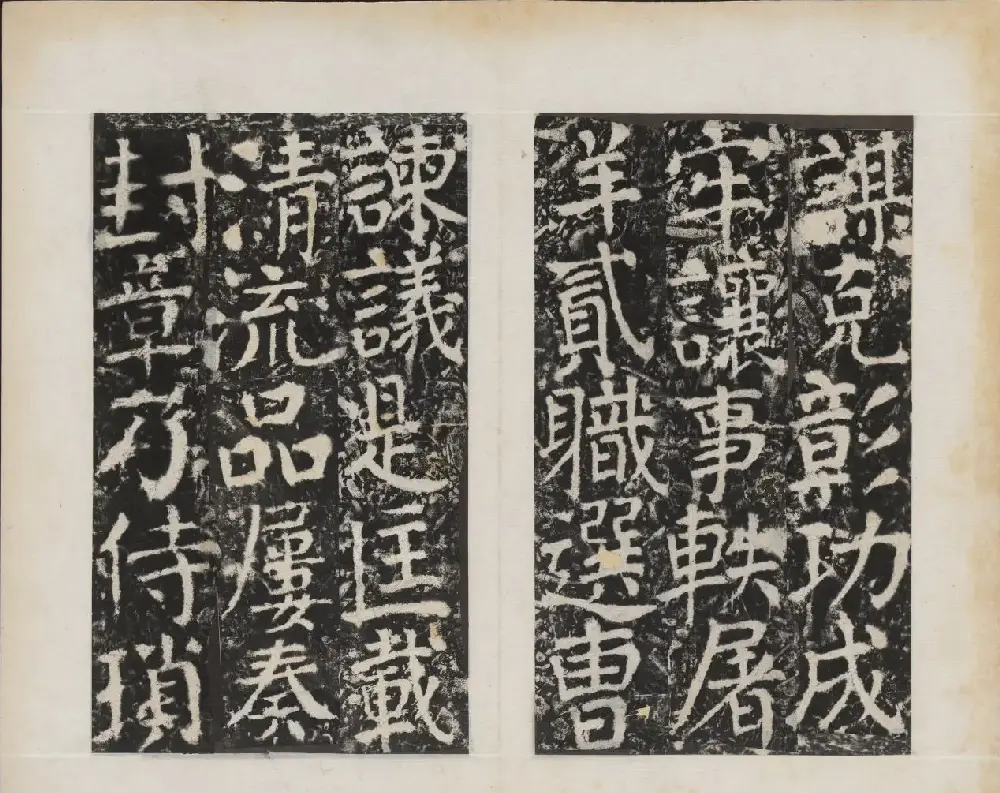 謀克彰功成
牢讓事軼屠
羊貳職選曹
諫議是匡載
清流品屢奏
封章乃侍瑣